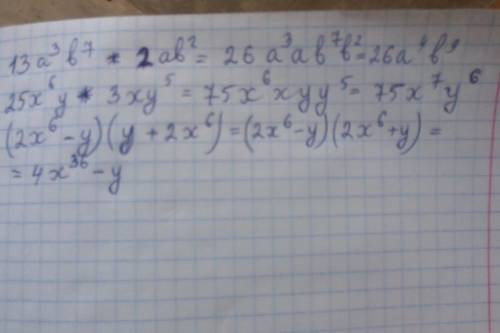 13a³b⁷ * 2ab² = 26a³ab⁷b² = 26a⁴b⁹
25x⁶y * 3xy⁵ = 75x⁶xyy⁵ = 75x⁷y⁶
(2x⁶-y)(y+2x⁶)=(2x⁶-y)(2x⁶+y)=
=4x³⁶-y